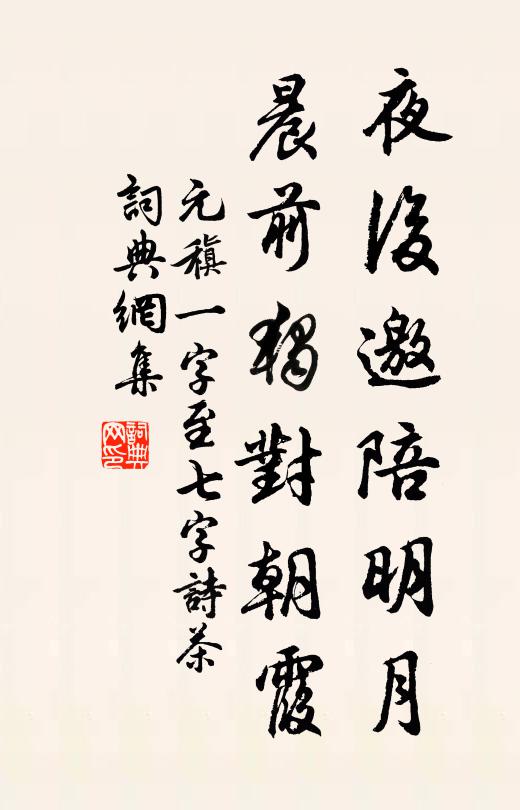 夜後邀陪明月
晨前獨對朝霞
元稹一字至七字詩茶
詞典網集
詞典网印